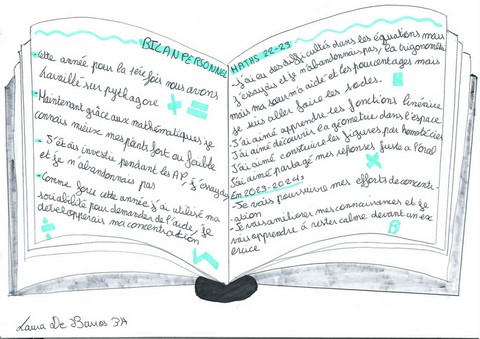 BILAN PERSONNEL
-Cette année pour la 1ère fois nous avons
travaillé sur pythagore
-Maintenant grâce aux mathématiques je
connais mieux mes points fort ou faible
-J'étais investie pendant les AP, j'essayais
et je n'abandonnais pas
-Comme force cette année j'ai utilisé ma
sociabilité pour demander de l'aide, je
developperais ma concentration
MATHS 22-23
-J'ai eu des difficultés dans les équations mais
j'essayais et je n'abandonnais pas, la trigonométrie
mais ma sœur m'a aidé et les pourcentages mais
je suis aller faire les soldes.
-J'ai aimé apprendre les fonctions linéaire
-J'ai aimé découvrir la géométrie dans l'espace
-J'ai aimé construire les figures par homothécies
-J'ai aimé partagé mes réponses juste à l'oral
En 2023-2024:
-Je vais poursuivre mes efforts de concentr-
ation
-Je vais améliorer mes connaissances et je
vais apprendre à rester calme devant un ex
ercice
Laura De Barros 3°A